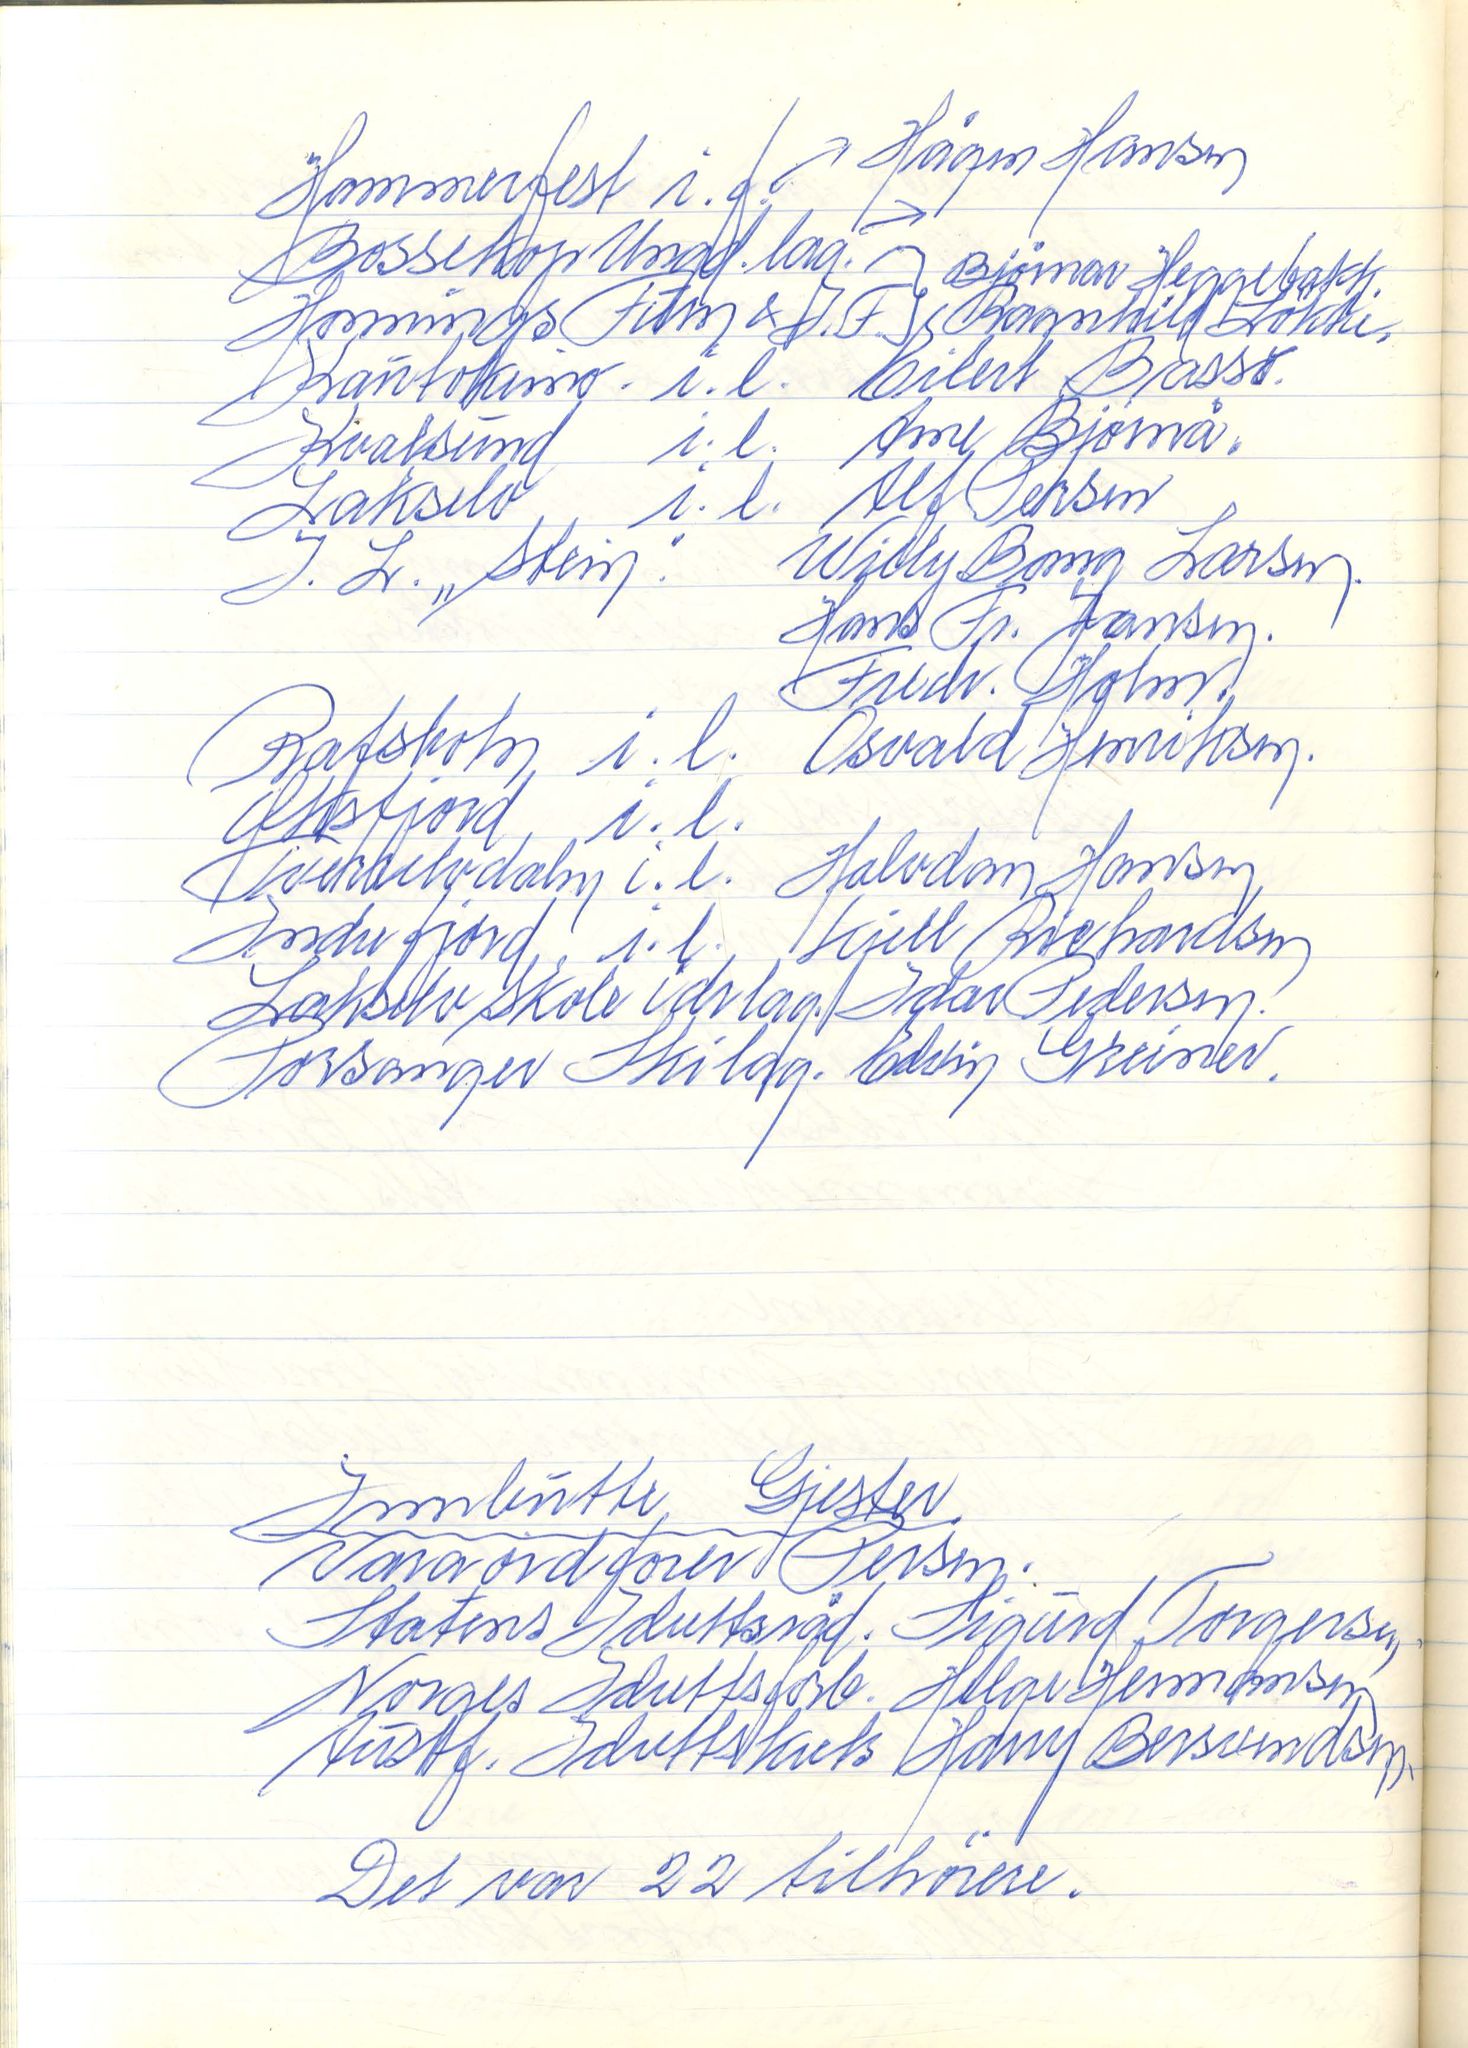 Hammerfest i.f. → Hågen Hansen
Bossekop Ungd.lag. → Bjørnar Heggebakk.
Honnings Film & I.F. Ragnhild Løkke.
Kautokeino i.l. Eilert Bassø.
Kvalsund i.l. Arne Bjørnå.
Lakselv i.l. Alf Persen
I. L. „Stein". Willy Bang Larsen.
Hans Fr. Hansen.
Fredr. Holm.
Rafsbotn i.l. Osvald Henriksen.
fjord i.l.
Tverrelvdalen i.l. Halvdan Hansen
Indrefjord i.l. Kjell Richardsen
Lakselv skole idr.lag. Idar Pedersen.
Porsanger Skilag. Edvin Greiner.
Innbudte Gjester.
Varaordfører Persen.
Statens Idrettsråd. Sigurd Torgersen,
Norges Idrettsforb. Helge Hermansen
Austf. Idrettskrets Harry Bersvendsen.
Det var 22 tilhørere.